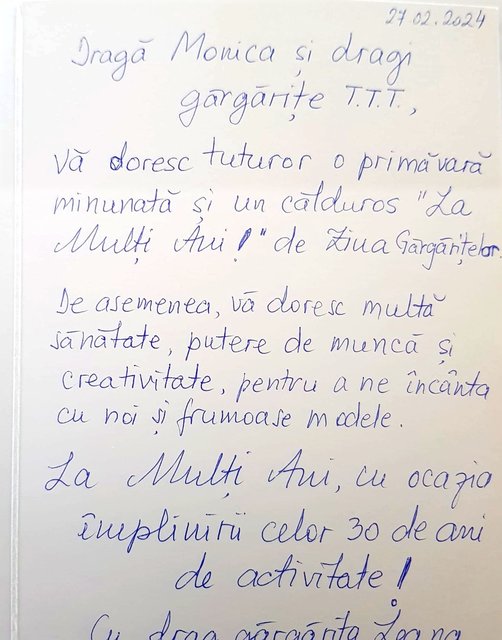 27 02. 2024
Dragă Monica și dragi
gărgărițe T.T.T.,
Vă doresc tuturor o primăvară
minunată și un călduros "La
Mulți Ani!" de Ziua Gărgărițelor.
De asemenea, vă doresc multă
sănătate, putere de muncă și
creativitate, pentru a ne încânta
cu noi și frumoase modele.
La Mulți Ani, cu ocazia
împlinirii celor 30 de ani
de activitate!
Cu drag gărgărița Ioana